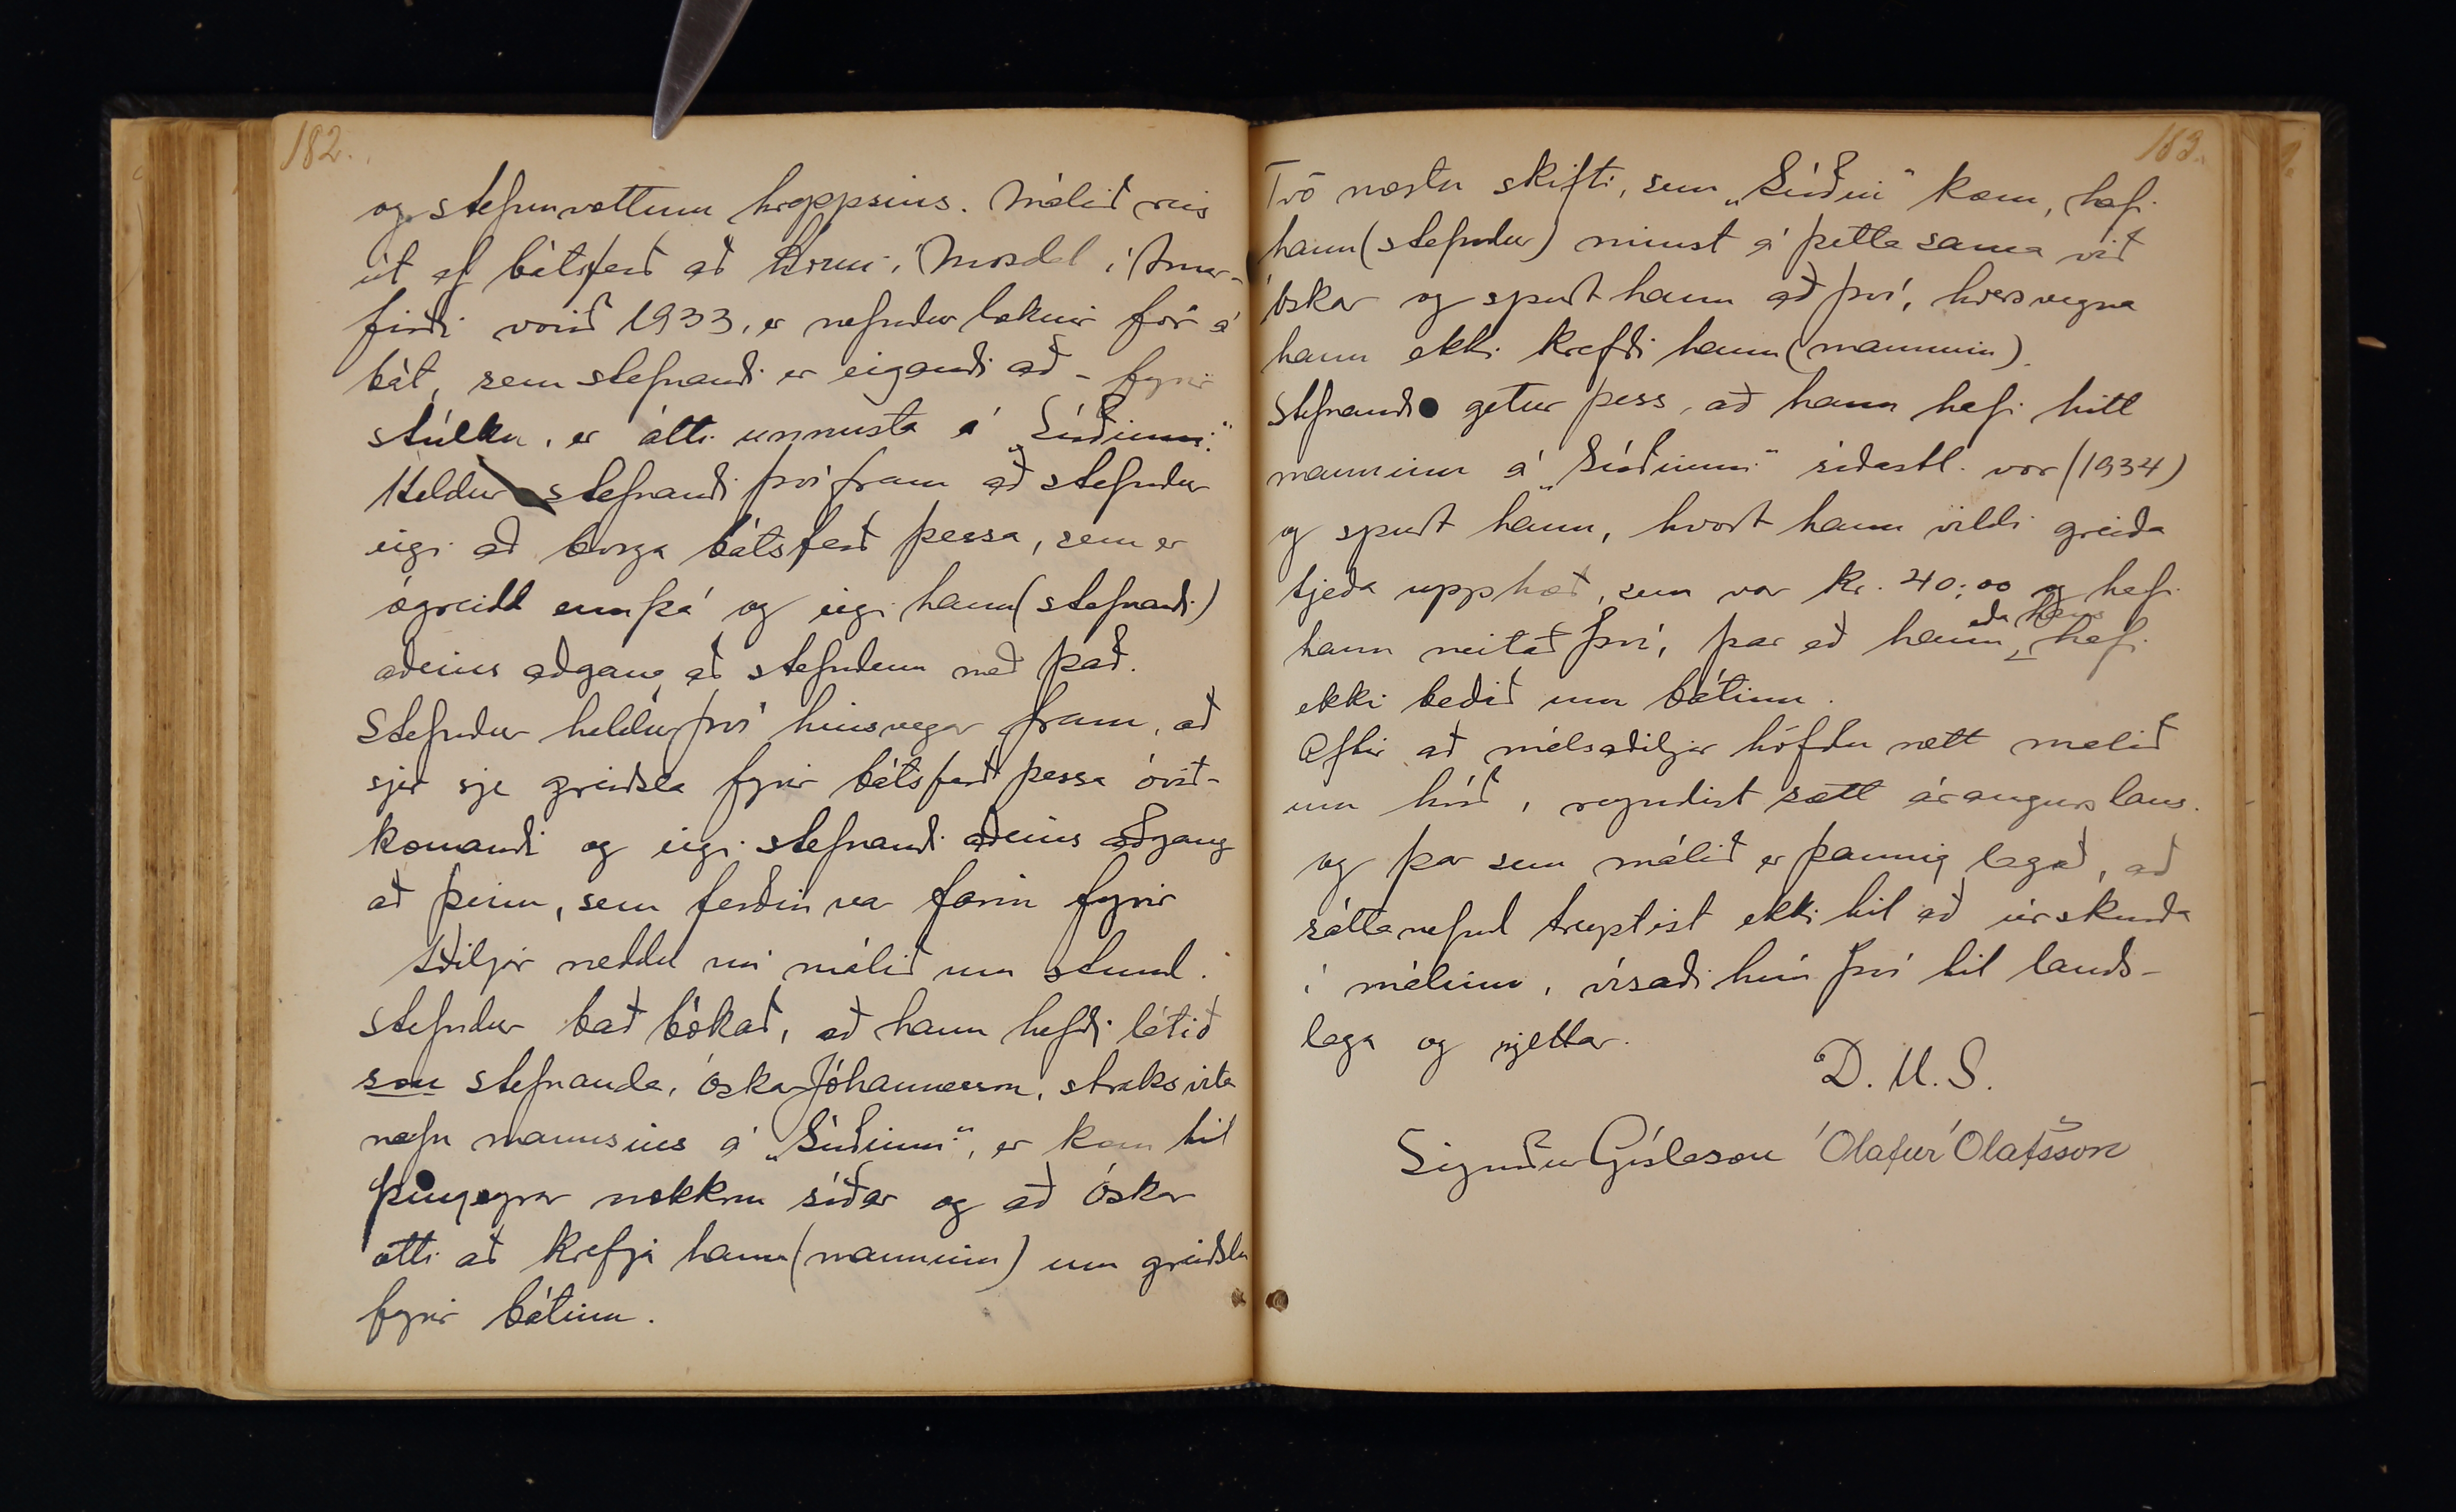 182.
og stefnuvottum hreppsins. Málið reis
út af bátsferð að Horni í Mosdal í Arnar-
firði vorið 1933, er nefndur læknir fór á
bát, sem stefnandi er eigandi að - fyrir
stúlku, er átti unnusta á „Súðinni."
Heldur stefnandi því fram að stefndur
eigi að borga bátsferð þessa, sem er
ógreidd ennþá og eigi hann (stefnandi)
aðeins aðgang að stefndum með það.
Stefndur heldur því hinsvegar fram, að
sjer sje greiðsla fyrir bátsferð þessa óvið-
komandi og eigi stefnandi aðeins aðgang
að þeim, sem ferðin var farin fyrir
Aðiljar ræddu nú málið um stund.
Stefndur bað bókað, að hann hefði látið
son stefnanda, Óskar Jóhannesson, straks vita
nafn mannsins á „Súðinni", er kom til
Þingeyrar nokkru síðar og að Óskar
ætti að krefja hann (manninn) um greiðslu
fyrir bátinn.
183.
Tvö næstu skifti, sem „Súðin" kom, hafi
hann (stefndur) minst á þetta sama við
Óskar og spurt hann að því, hversvegna
hann ekki krefði hann (manninn).
Stefnandi getur þess, að hann hafi hitt
manninn á „Súðinni" síðastl. vor (1934)
og spurt hann, hvort hann vildi greiða
tjeða upphæð, sem var kr. 40,00 og hafi
hann neitað því, þar eð hann eða hans hafi
ekki beðið um bátinn.
Eftir að málsaðiljar höfðu rætt málið
um hríð, reyndist sátt árangurslaus.
og þar sem málið er þannig lagað, að
sáttanefnd treystist ekki til að úrskurða
í málinu, vísaði hún því til lands-
laga og rjettar.
D. U. S.
Sigurður Gíslason Ólafur Ólafsson